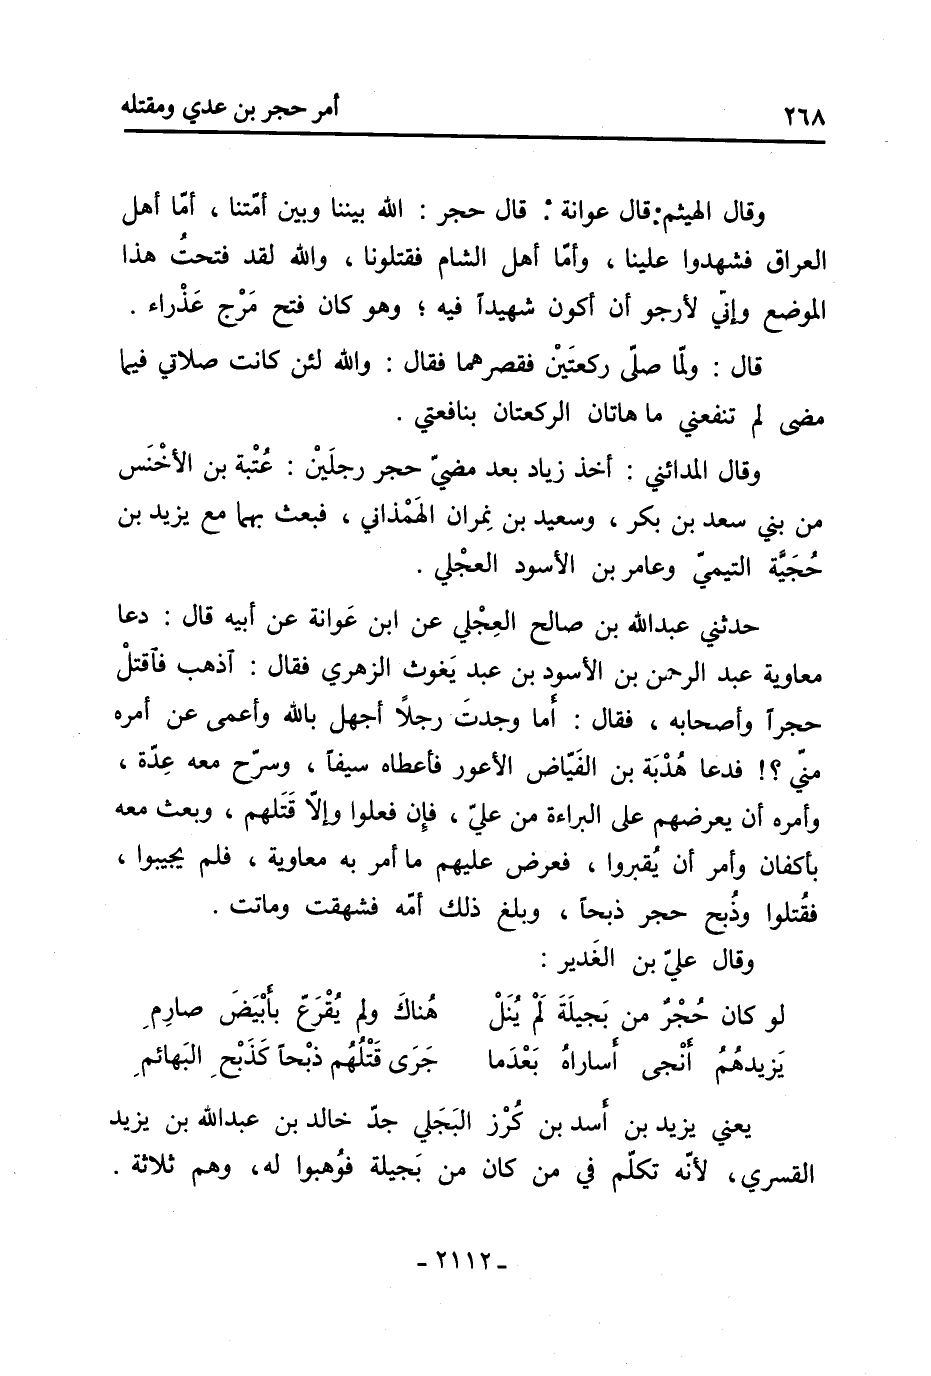 ٢٦٨ أمر حجر بن عدي ومقتله
وقال الهيثم: قال عوانة : قال حجر : الله بيننا وبين أمّتنا ، أمّا أهل
العراق فشهدوا علينا ، وأمّا أهل الشام فقتلونا ، والله لقد فتحتُ هذا
الموضع وإنّي لأرجو أن أكون شهيداً فيه ؛ وهو كان فتح مَرْج عَذْراء .
قال : ولمّا صلّى ركعتَيْن فقصرهما فقال : والله لئن كانت صلاتي فيما
مضى لم تنفعني ما هاتان الركعتان بنافعتي .
وقال المدائني : أخذ زياد بعد مضيّ حجر رجلَيْن : عُتْبة بن الأخْنَس
من بني سعد بن بكر ، وسعيد بن نِمران الهَمْذاني ، فبعث بهما مع يزيد بن
حُجَيَّة التيميّ وعامر بن الأسود العجْلي .
حدثني عبدالله بن صالح العِجْلي عن ابن عَوانة عن أبيه قال : دعا
معاوية عبد الرحمن بن الأسود بن عبد يَغوث الزهري فقال : آذهب فآقتلْ
حجراً وأصحابه ، فقال : أَما وجدتَ رجلاً أجهل بالله وأعمى عن أمره
منّي ؟! فدعا هُدْبَة بن الفَيّاض الأعور فأعطاه سيفاً ، وسرّح معه عِدّة ،
وأمره أن يعرضهم على البراءة من عليّ ، فإن فعلوا وإلاّ قَتَلهم ، وبعث معه
بأكفان وأمر أن يُقبروا ، فعرض عليهم ما أمر به معاوية ، فلم يجيبوا ،
فقُتلوا وذُبح حجر ذبحاً ، وبلغ ذلك أمّه فشهقت وماتت .
وقال عليّ بن الغَدير :
لو كان حُجْرٌ من بَجيلَةَ لَمْ يُنَلْ هُناكَ ولم يُقْرَعّ بأَبْيَضَ صارِمِ
يَزيدهُمُ أَنْجى أَساراهُ بَعْدَما جَرَى قَتْلُهُم ذبْحاً كَذَبْحِ البَهائمِ
يعني يزيد بن أَسد بن كُرْز البَجَلي جدّ خالد بن عبدالله بن يزيد
القسري، لأنّه تكلّم في من كان من بَجيلة فوُهبوا له، وهم ثلاثة .
- ٢١١٢ -